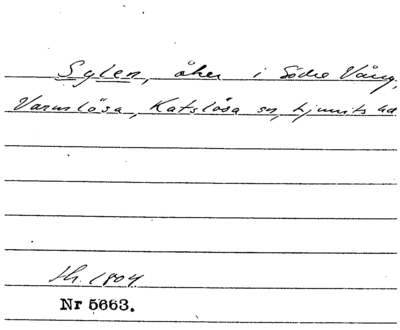 Sylen, åker i Södre Vång,
Varmlösa, Katslösa sn, Ljunits hd
Sk. 1804
Nr 5663.